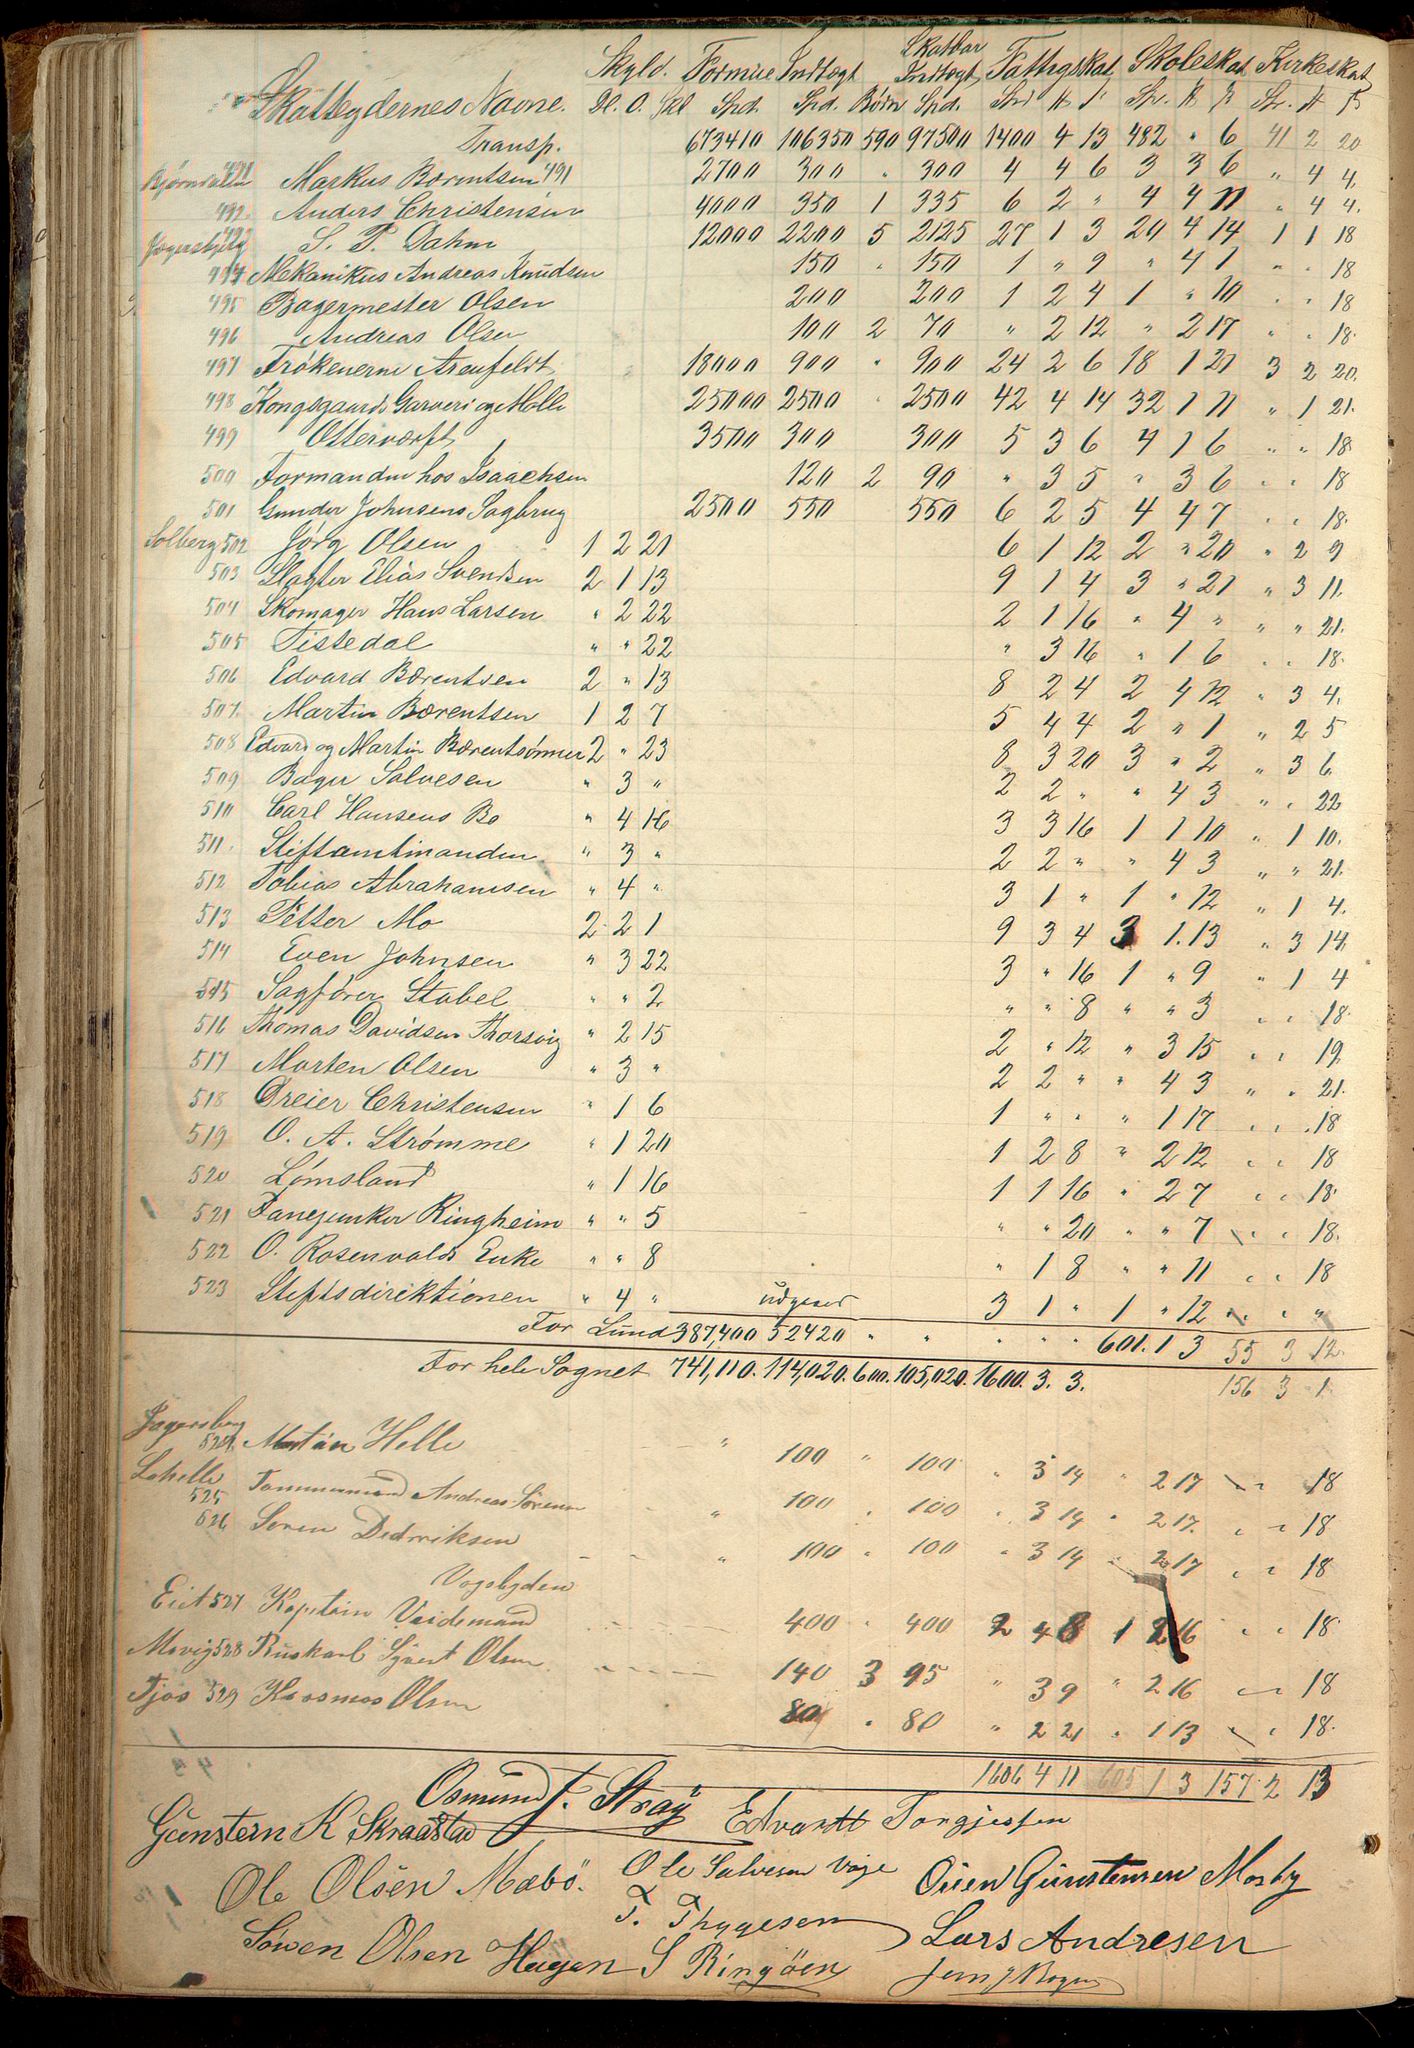 Skatteydernes Navne. Skyld. Dl. O. Skl Formue Spd. Indtægt Spd. Børn Skatbar Indtægt Spd. Fattigskat Spd # ß Skoleskat Sp. # ß Kirkeskat Sp. # ß
Transp. 673410 106350 590 97500 1400 4 13 482 " 6 41 2 20
491 Markus Bærentsen 491 2700 300 " 300 4 4 6 3 3 6 " 4 4
492 Anders Christensen 4000 350 1 335 6 2 " 4 4 11 " 4 4.
Jegersberg 493 S. P. Dahm 12000 2200 5 2125 27 1 3 20 4 14 1 1 18
494 Mekanikus Andreas Knudsen 150 " 150 1 " 9 " 4 1 " " 18
495 Bagermester Olsen 200 200 1 2 4 1 " 10 " " 18
496 Andreas Olsen 100 2 70 " 2 12 " 2 17 " " 18.
497 Frøkenerne Arenfeldt 18000 900 " 900 24 2 6 18 1 21 3 2 20.
498 Kongsgaards Garveri og Mølle 25000 2500 2500 42 4 14 32 1 11 " 1 21.
499 Ottersværft 3500 300 300 5 3 6 4 1 6 " " 18
500 Formanden hos Isaachsen 120 2 90 " 3 5 " 3 6 " " 18
501 Gunder Johnsens Sagbrug 2500 550 550 6 2 5 4 4 7 " " 18.
Solberg 502 Jørg Olsen 1 2 21 6 1 12 2 " 20 " 2 9
503 Slagter Elias Svendsen 2 1 13 9 1 4 3 " 21 " 3 11.
504 Skomager Hans Larsen " 2 22 2 1 16 " 4 " " " 21.
505 Tistedal " " 22 " 3 16 " 1 6 " " 18.
506 Edvard Bærentsen 2 " 13 8 2 4 2 4 12 " 3 4.
507 Martin Bærentsen 1 2 7 5 4 4 2 " 1 " 2 5
508 Edvard og Martin Bærentsønner 2 " 23 8 3 20 3 " 2 " 3 6
509 Bager Salvesen " 3 " 2 2 " " 4 3 " " 22
510 Carl Hansens Bo " 4 16 3 3 16 1 1 10 " 1 10.
511. Stiftamtmanden " 3 " 2 2 " " 4 3 " " 21.
512 Tobias Abrahamsen " 4 " 3 1 " 1 " 12 " 1 4.
513 Petter Mo 2 2 1 9 3 4 3 1.13 " 3 14
514 Even Johnsen " 3 22 3 " 16 1 " 9 " 1 4
515 Sagfører Stabel " " 2 " " 8 " " 3 " " 18.
516 Thomas Davidsen Thorsvig " 2 15 2 " 12 " 3 15 " " 19
517 Morten Olsen " 3 " 2 2 " " 4 3 " " 21.
518 Dreier Christensen " 1 6 1 " " " 1 17 " " 18
519 O. A. Strømme " 1 20 1 2 8 " 2 12 " " 18
520 Lømsland " 1 16 1 1 16 " 2 7 " " 18.
521 Fanejunker Ringheim " " 5 " " 20 " " 7 " " 18.
522 O. Rosenvolds Enke " " 8 " 1 8 " " 11 " " 18
523 Stiftsdirektionen " 4 " udgaar 3 1 " 1 " 12 " " "
For Lund 387,400 52420 " " " " " 601. 1 3 55 3 12.
For hele Sognet 741,110. 114,020. 600. 105,020. 1600. 3. 3. 156 3 1
Jegersberg
524 Martin Helle " 100 " 100 " 3 14 " 2 17 " " 18
525 Tømmermand Andreas Sørensen " 100 " 100 " 3 14 " 2 17. " " 18
526 Søren Didriksen " 100 " 100 " 3 14 " 2 17 " " 18
Vogsbygden
Eiet 527 Kaptein Veidemand 400 " 400 2 4 8 1 2 16 " " 18
Movig 528 Ruskarl Sjvert Olsen 140 3 95 " 3 9 " 2 16 " " 18
Tjos 529 Kassmos Olsen 80 " 80 " 2 21 " 1 13 " " 18.
1606 4 11 605 1 3 157 2 13
Osmund J. Straÿ
Gunstern K Skraastad Edvardt Torgjessen
Ole Olsen Mæbö. Ole Salvesen Vaje Osuen Gunstensen Mosby
T. Thygesen
Søwen Olsen Hagen S Ringöen Lars Andresen